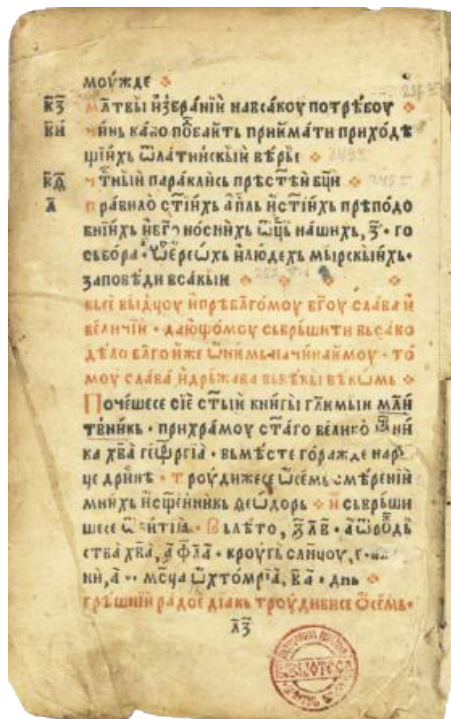 моу́жде
к҃з мл҃твы и҆збра́нїи навса́коу потрѣ́боу
к҃и чи́нь ка́ко побаить прїима́ти прихо́де
щїихь ѿлати́нскыи вѣ́ры
к҃ѳ чтⷭ҇ны́и пара́клись прѣст҃ѣ́и бц҃и
л҃ пра́вило ст҃ы́ихь а҆пⷭ҇ль и҆ст҃ы́ихь прѣподо́
бнїихь и҆бг҃оно́снихь ѡ҆ц҃ь на́шихь, з҃. го
събо́ра · ѡ҆ере́ѡхь и҆лю́дехь мы́рскыихь·
за́повѣди вса́кыи
въсе́ ви́дцоу и҆прѣбл҃го́моу бг҃оу сла́ва и҆
вели́чїи · даю́щомоу съврь́шити въса́ко
дѣ́ло бл҃го и҆́же ѡ҆не́мь начина́ймоу · то́
моу сла́ва и҆дръжа́ва въвѣ́кы вѣ́кѡмь
Поче́шесе сїе́ ст҃ы́и кни́гы гл҃имыи мл҃и
тв́никь · прихра́моу ст҃а́го вели́ко мⷱ҇ни
ка хв҃а геѡ́ргїа · въмѣ́сте го́ражде нари́
це дри́нѣ · троуди́жесе ѡ҆се́мь смѣ́ренїи
мни́хь и҆сщ҃е́нникь ѳео́дорь · и҆ съврь́ши
шесе ѿби́тїа · Въ лѣ́то, ҂з҃л҃в · а҆ѿро́дь
ства хв҃а, ҂а҃ф҃л҃а · кроу́гь сл҃нцоу, е҃
ни, а҃ · мⷭ҇ца ѡ҆хто́мрїа, к҃а · дн҃ь
грѣ́шнїи ра́дое дїа́кь троуди́висе ѡ҆се́мь·
л҃з